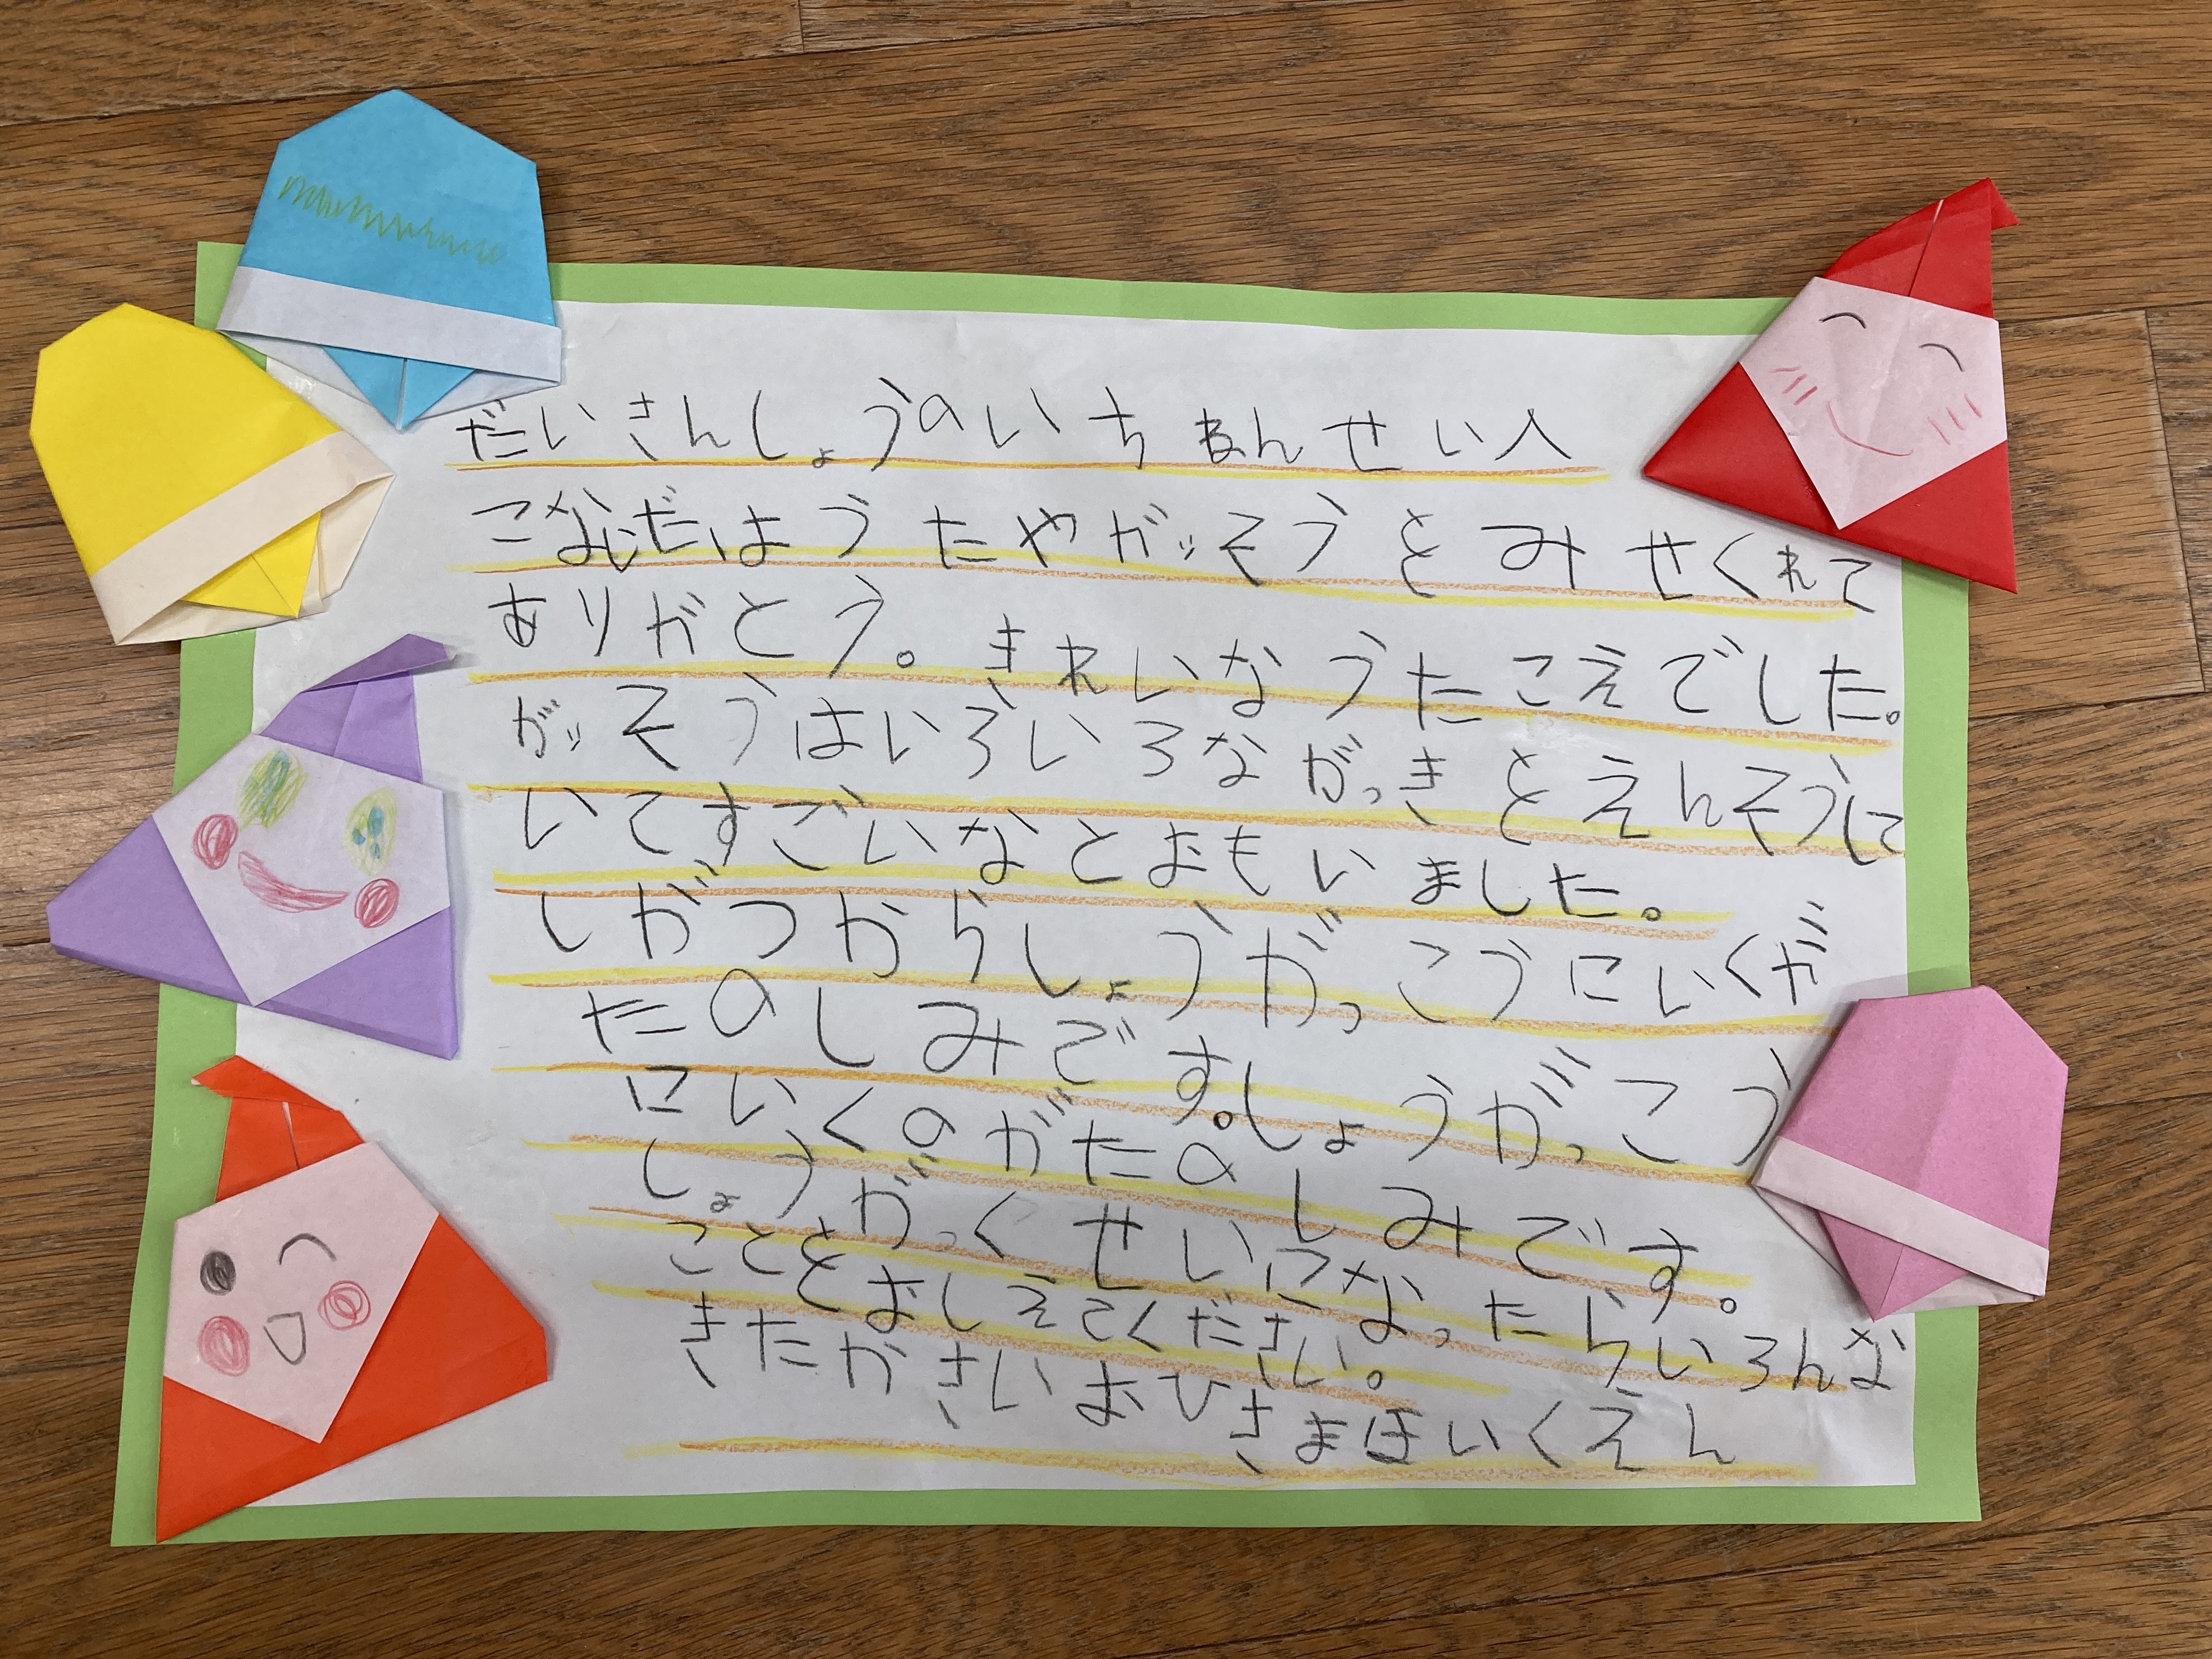 だいさんしょうのいちねんせいへ
こないだはうたやがっそうとみせくれて
ありがとう。きれいなうたこえでした。
がっそうはいろいろながっきとえんそうして
いてすごいなとおもいました。
しがつからしょうがっこうにいくが
たのしみです。しょうがっこう
にいくのがたのしみです。
しょうがっくせいになったらいろんな
こととおしえてください。
きたかさいおひさまほいくえん